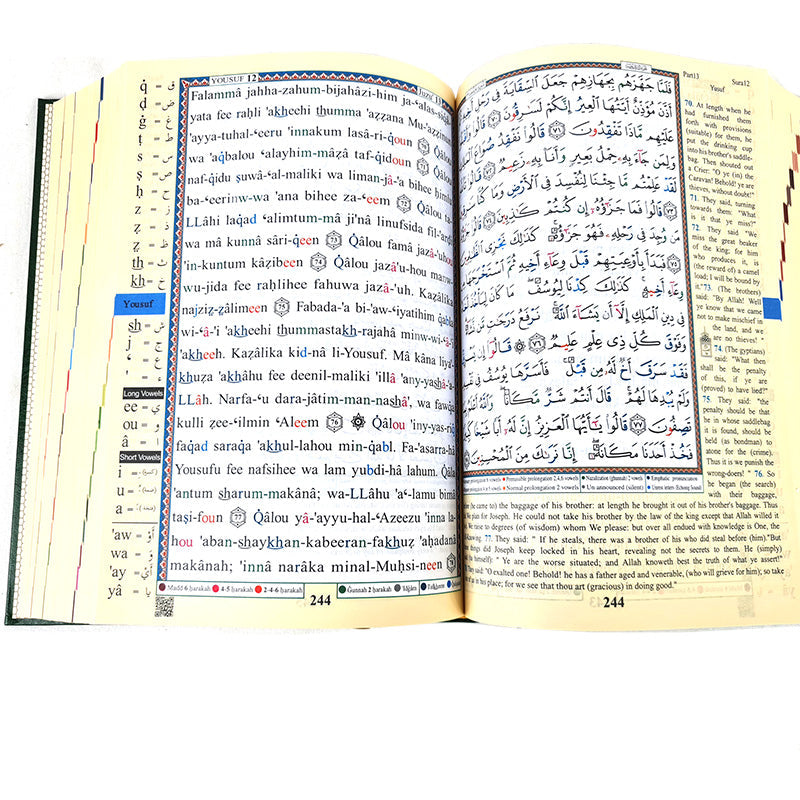 YOUSUF 12
Juzu' 13
Falammâ jahha-zahum-bijahâzi-him ja-'alas-siqâ-
yata fee raḥli 'akheehi thumma 'azzana Mu-'azzinun
'ayya-tuhal-'eeru 'innakum lasâ-ri-qoun 70
wa 'aqbalou 'alayhim-mâẓâ taf-qidoun 71 Qâlou
naf-qidu ṣuwâ-'al-maliki wa liman-jâ-'a bihee ḥimlu
ba-'eerin-w-wa 'ana bihee za-'eem 72 Qâlou ta-
LLâhi laqad 'alimtum-mâ ji'nâ linufsida fil-'arḍi
wa mâ kunnâ sâri-qeen 73 Qâlou famâ jazâ-'uhou
'in-kuntum kâẓibeen 74 Qâlou jazâ'u-hou manw-
wu-jida fee raḥlihee fahuwa jazâ-'uh. Kaẓâlika
najziẓ-ẓâlimeen 75 Fabada-'a bi-'aw-'iyatihim qabla
wi-'â-'i 'akheehi thummastakh-rajahâ minw-wi-'â-'i
'akheeh. Kaẓâlika kid-nâ li-Yousuf. Mâ kâna liya'-
khuẓa 'akhâhu fee deenil-maliki 'illâ 'any-yashâ-'a-
LLâh. Narfa-'u dara-jâtim-man-nashâ', wa fawqa
kulli zee-'ilmin 'Aleem 76 Qâlou 'iny-yas-riq
faqad saraqa 'akhul-lahou min-qabl. Fa'asarra-hâ
Yousufu fee nafsihee wa lam yubdi-hâ lahum. Qâla
'antum sharum-makânâ; wa-LLâhu 'a'-lamu bimâ
taṣi-foun 77 Qâlou yâ-'ayyu-hal-'Azeezu 'inna la-
hou 'aban-shaykhan-kabeeran-fakhuẓ 'aḥadanâ
makânah; 'innâ narâka minal-Muḥsi-neen 78
Madd 6 ḥarakah 4-5 ḥarakah 2-4-6 ḥarakah Ġunnah 2 ḥarakah Idġâm Tafkheem
244
q̇ = ق
ḍ = ض
ġ = غ
ṭ = ط
ṣ = ص
ḥ = ح
z = ز
ẓ = ظ
ẓ = ذ
th = ث
kh = خ
Yousuf
sh = ش
j = ج
' = ء
' = ع
Long Vowels
ee = ي
ou = و
â = ا
Short Vowels
i =
u =
a =
'aw = أَوْ
wa = وَ
'ay = أَيْ
yâ = يا
Part13 Sura12
Yusuf
فَلَمَّا جَهَّزَهُم بِجَهَازِهِمْ جَعَلَ ٱلسِّقَايَةَ فِى رَحْلِ أَخِيهِ
أَذَّنَ مُؤَذِّنٌ أَيَّتُهَا ٱلْعِيرُ إِنَّكُمْ لَسَٰرِقُونَ ٧٠ قَالُوا۟
عَلَيْهِم مَّاذَا تَفْقِدُونَ ٧١ قَالُوا۟ نَفْقِدُ صُوَاعَ
وَلِمَن جَآءَ بِهِۦ حِمْلُ بَعِيرٍ وَأَنَا۠ بِهِۦ زَعِيمٌ ٧٢
لَقَدْ عَلِمْتُم مَّا جِئْنَا لِنُفْسِدَ فِى ٱلْأَرْضِ وَمَا كُنَّا سَٰرِقِينَ
٧٣ قَالُوا۟ فَمَا جَزَٰٓؤُهُۥٓ إِن كُنتُمْ كَٰذِبِينَ
مَن وُجِدَ فِى رَحْلِهِۦ فَهُوَ جَزَٰٓؤُهُۥ كَذَٰلِكَ نَجْزِى ٱلظَّٰلِمِينَ
٧٥ فَبَدَأَ بِأَوْعِيَتِهِمْ قَبْلَ وِعَآءِ أَخِيهِ ثُمَّ ٱسْتَخْرَجَهَا
وِعَآءِ أَخِيهِ كَذَٰلِكَ كِدْنَا لِيُوسُفَ مَا كَانَ
فِى دِينِ ٱلْمَلِكِ إِلَّآ أَن يَشَآءَ ٱللَّهُ نَرْفَعُ دَرَجَٰتٍ مَّن
وَفَوْقَ كُلِّ ذِى عِلْمٍ عَلِيمٌ ٧٦ قَالُوٓا۟ إِن
فَقَدْ سَرَقَ أَخٌ لَّهُۥ مِن قَبْلُ فَأَسَرَّهَا يُوسُفُ
وَلَمْ يُبْدِهَا لَهُمْ قَالَ أَنتُمْ شَرٌّ مَّكَانًا وَٱللَّهُ أَعْلَمُ
تَصِفُونَ ٧٧ قَالُوا۟ يَٰٓأَيُّهَا ٱلْعَزِيزُ إِنَّ لَهُۥٓ أَبًا شَيْخًا
فَخُذْ أَحَدَنَا مَكَانَهُۥٓ إِنَّا نَرَىٰكَ مِنَ ٱلْمُحْسِنِينَ
6 vowels Permissible prolongation 2,4,6 vowels Nazalization (ghunnah) 2 vowels Emphatic pronunciation
vowels Normal prolongation 2 vowels Un announced (silent) Unrest letters (Echoing Sound)
70. At length when he
had furnished them
forth with provisions
(suitable) for them, he
put the drinking cup
into his brother's saddle-
bag. Then shouted out
a Crier: "O ye (in) the
Caravan! Behold! ye are
thieves, without doubt!"
71. They said, turning
towards them: "What
is it that ye miss?"
72. They said "We
miss the great beaker
of the king; for him
who produces it, is
(the reward of) a camel
load; I will be bound by
it."73. (The brothers)
said: "By Allah! Well
ye know that we came
not to make mischief in
the land, and we
are no thieves!"
74. (The gyptians)
said: "What then
shall be the penalty
of this, if ye are
(proved) to have lied?"
75. They said: "the
penalty should be that
he in whose saddle-bag
it is found, should be
held (as bondman) to
atone for the (crime).
Thus it is we punish the
wrong-doers!" 76. So
he began (the search)
with their baggage,
(he came to) the baggage of his brother: at length he brought it out of his brother's baggage. Thus
We plan for Joseph. He could not take his brother by the law of the king except that Allah willed it
We to degrees (of wisdom) whom We please: but over all endued with knowledge is One, the
Knowing. 77. They said: " If he steals, there was a brother of his who did steal before (him)."But
things did Joseph keep locked in his heart, revealing not the secrets to them. He (simply)
himself): " Ye are the worse situated; and Allah knoweth best the truth of what ye assert!"
said: "O exalted one! Behold! he has a father aged and venerable, (who will grieve for him); so take
in his place; for we see that thou art (gracious) in doing good."
244